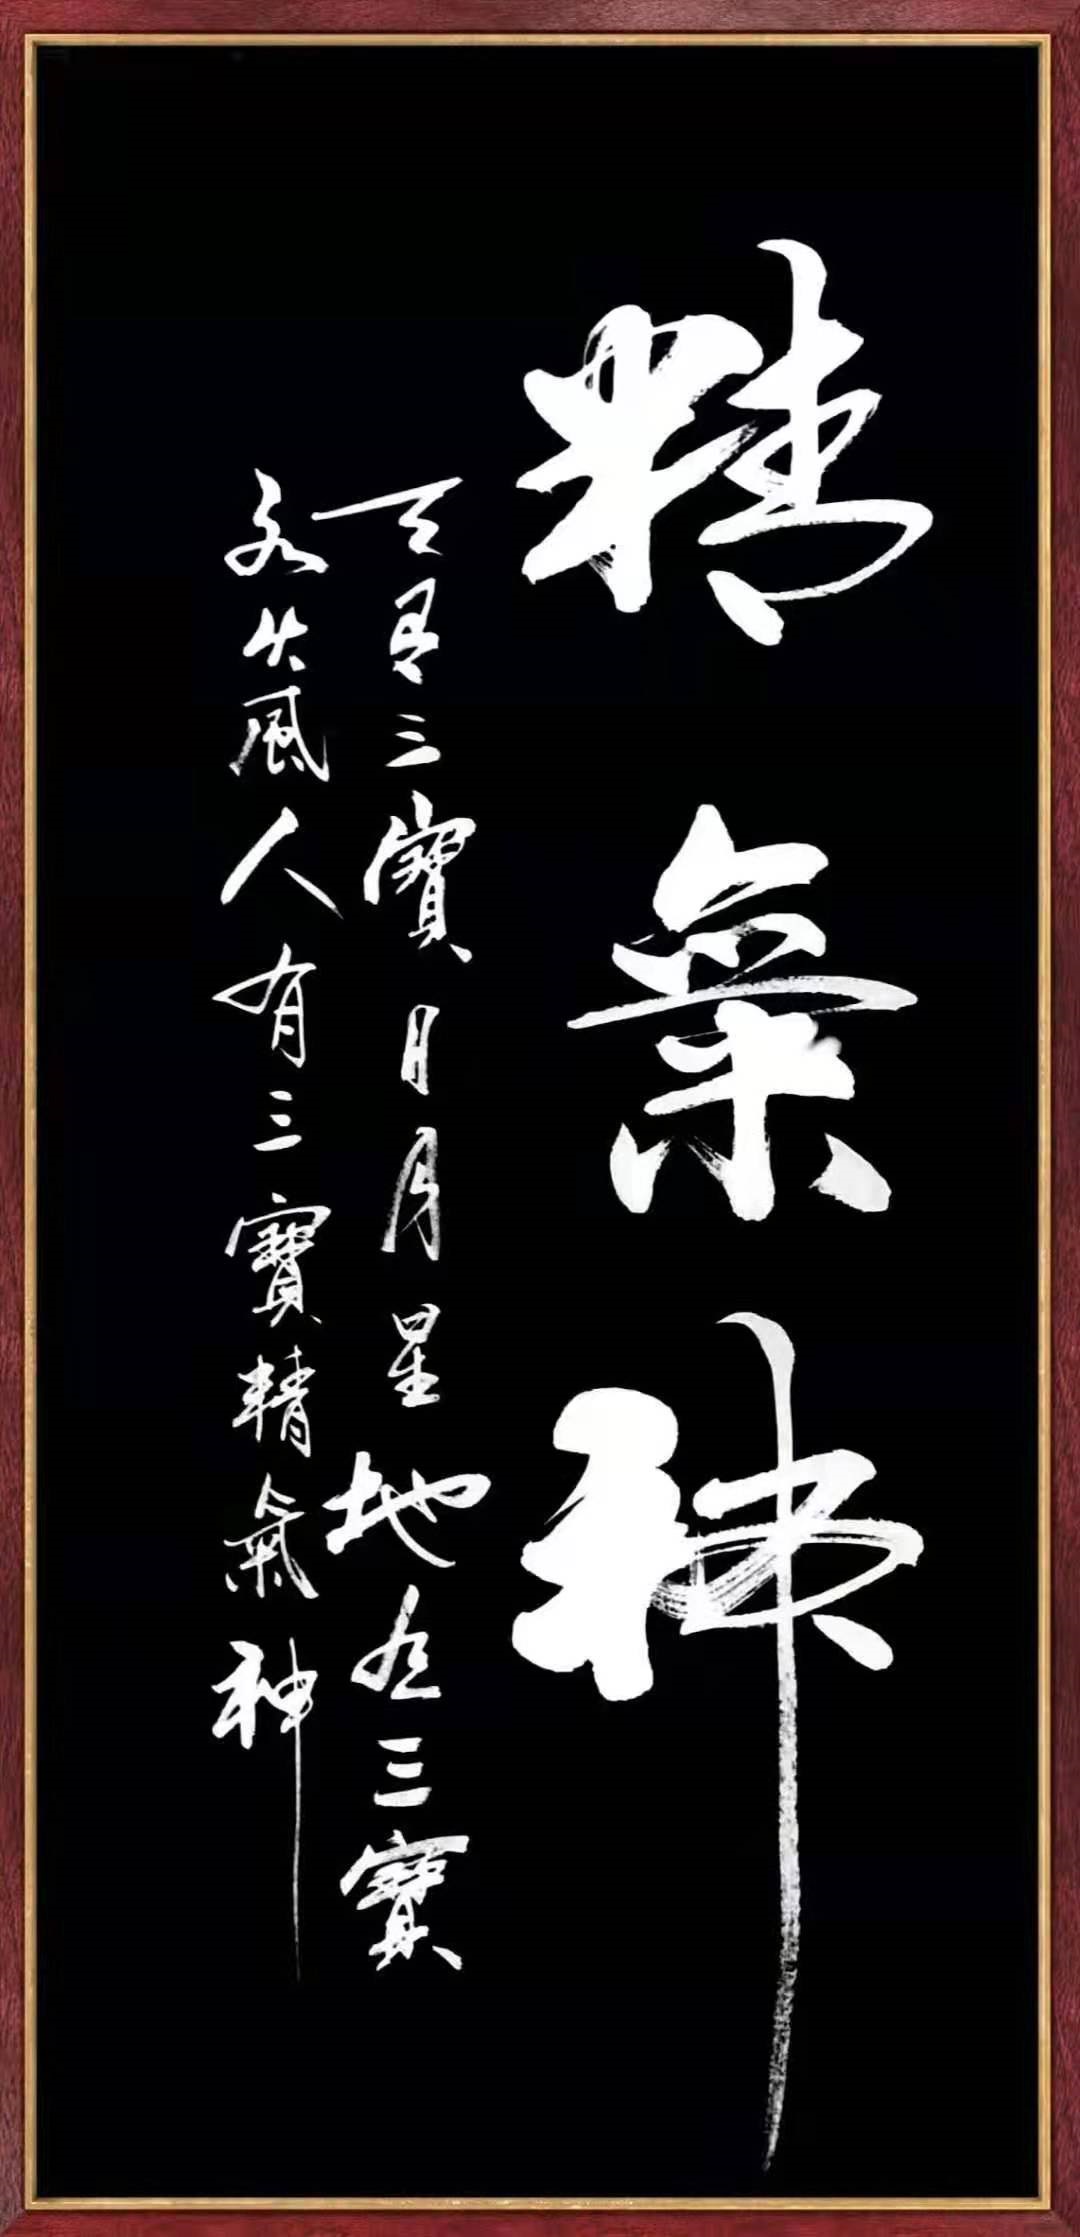 精氣神
天有三寶日月星地有三寶
水火風人有三寶精氣神